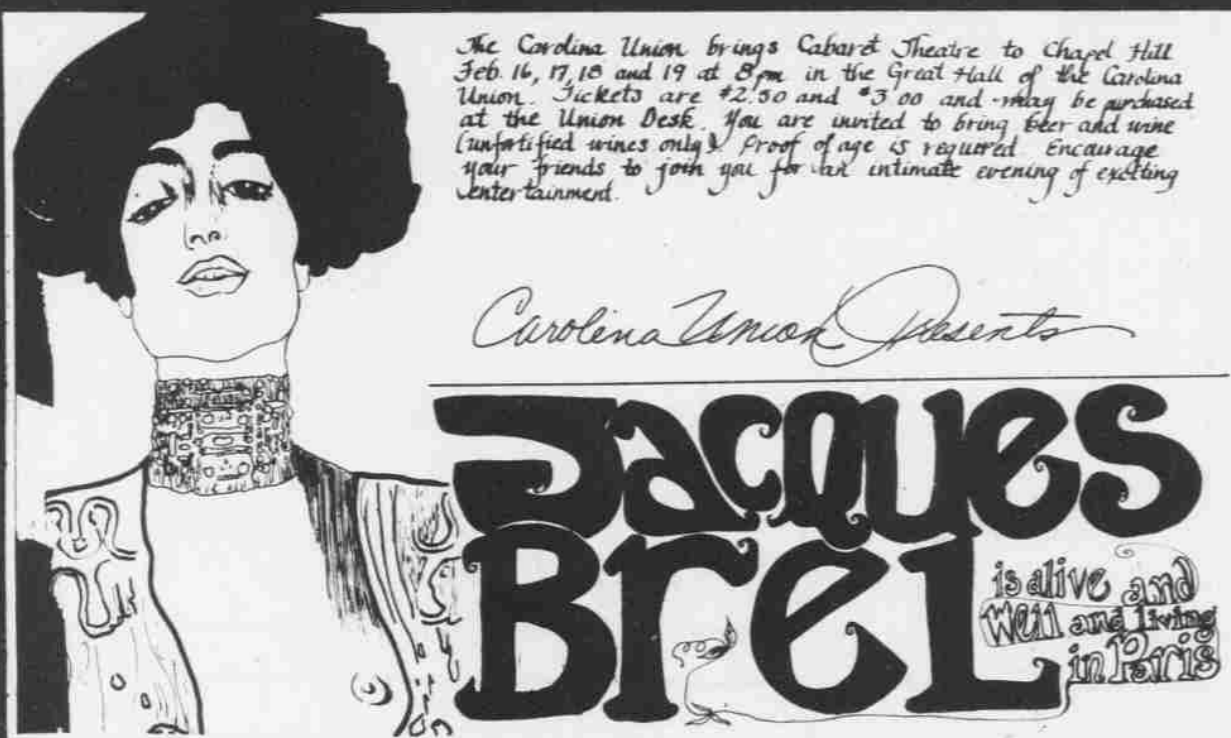 The Carolina Union brings Cabaret Theatre to Chapel Hill
Feb. 16, 17, 18 and 19 at 8 pm in the Great Hall of the Carolina
Union. Tickets are $2.50 and $3.00 and may be purchased
at the Union Desk. You are invited to bring beer and wine
(unfortified wines only). Proof of age is required. Encourage
your friends to join you for an intimate evening of exciting
entertainment.
Carolina Union Presents
Jacques
Brel
is alive and
well and living
in Paris